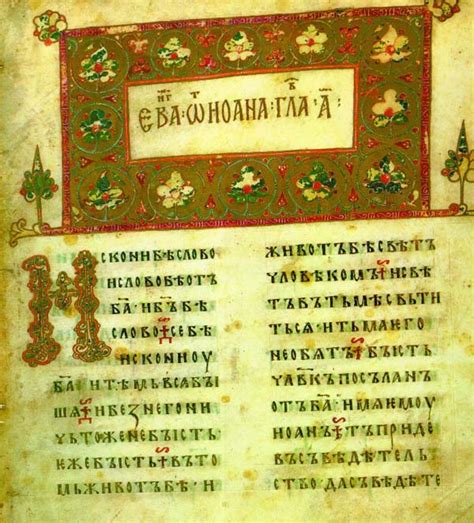 ЕВА҃ · Ѿ ИОАНА · ГЛА҃ · А҃ :
ИСКОНИБѢСЛОВО
ИСЛОВОБѢОТЪ
БА҃ · ИБЪ҃БѢ
СЛОВО СЕБѢ
ИСКОНИОУ
БА҃ ИТѢМЬВСѦБЫ
ШѦ ИБЕЗНЕГОНИ
ЧЬТОЖЕНЕБЫСТЬ
ѤЖЕБЫСТЬ ВЪТО
МЬЖИВОТЪБѢ · И
ЖИВОТЪБѢСВѢТЪ
ЧЛОВѢКОМЪ ИСВѢ
ТЪВЪТЬМѢСВЬТИ
ТЬСѦ ИТЬМАѤГО
НЕОБѦТЪ БЫСТЬ
ЧЛВ҃КЪПОСЪЛАНЪ
ОТЪБА҃ · ИМѦѤМОУ
ИОАНЪ ТЪПРИДЕ
ВЪСЪВѢДѢТЕЛЬ
СТВОДАСЪВѢДѢТЕ